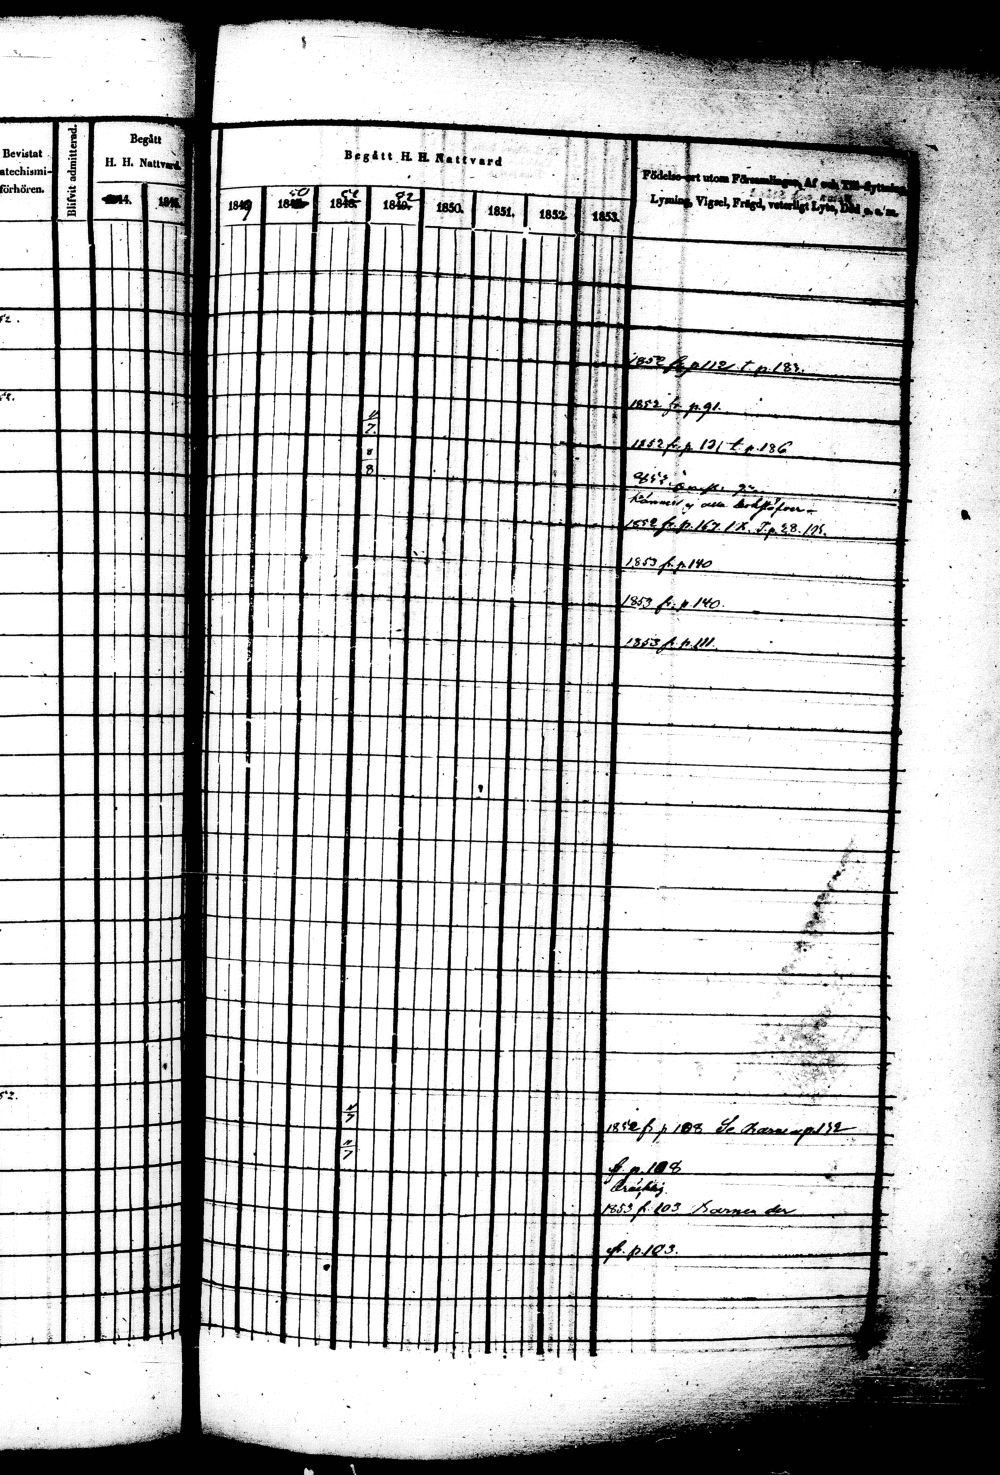 Bevistat
atechismi-
förhören.
Blifvit admitterad.
Begått
H. H. Nattvard
1844. 1845.
Begått H. H. Nattvard
50 51 52
1849 1848. 1849. 1850. 1851. 1852 1853.
Födelse-ort utom Församlingen, Af och Till-flyttning,
Lysning, Vigsel, Frägd, veterligt Lyte, Död o. s. m.
52.
1852 fr. p. 112 t. p. 183.
1852 fr. p. 91.
11
7.
1852 fr. p. 121 t. p. 186
8
8
1852 fr. p. 167. T. p. 28.
1853 fr. p. 140
1853 fr. p. 140.
1853 fr. p. 111.
52.
11
7
1852 fr p 108 Se Barnen p. 132
11
7
fr. p. 108
1853 fr. 103 Barnen der
fr. p. 103.